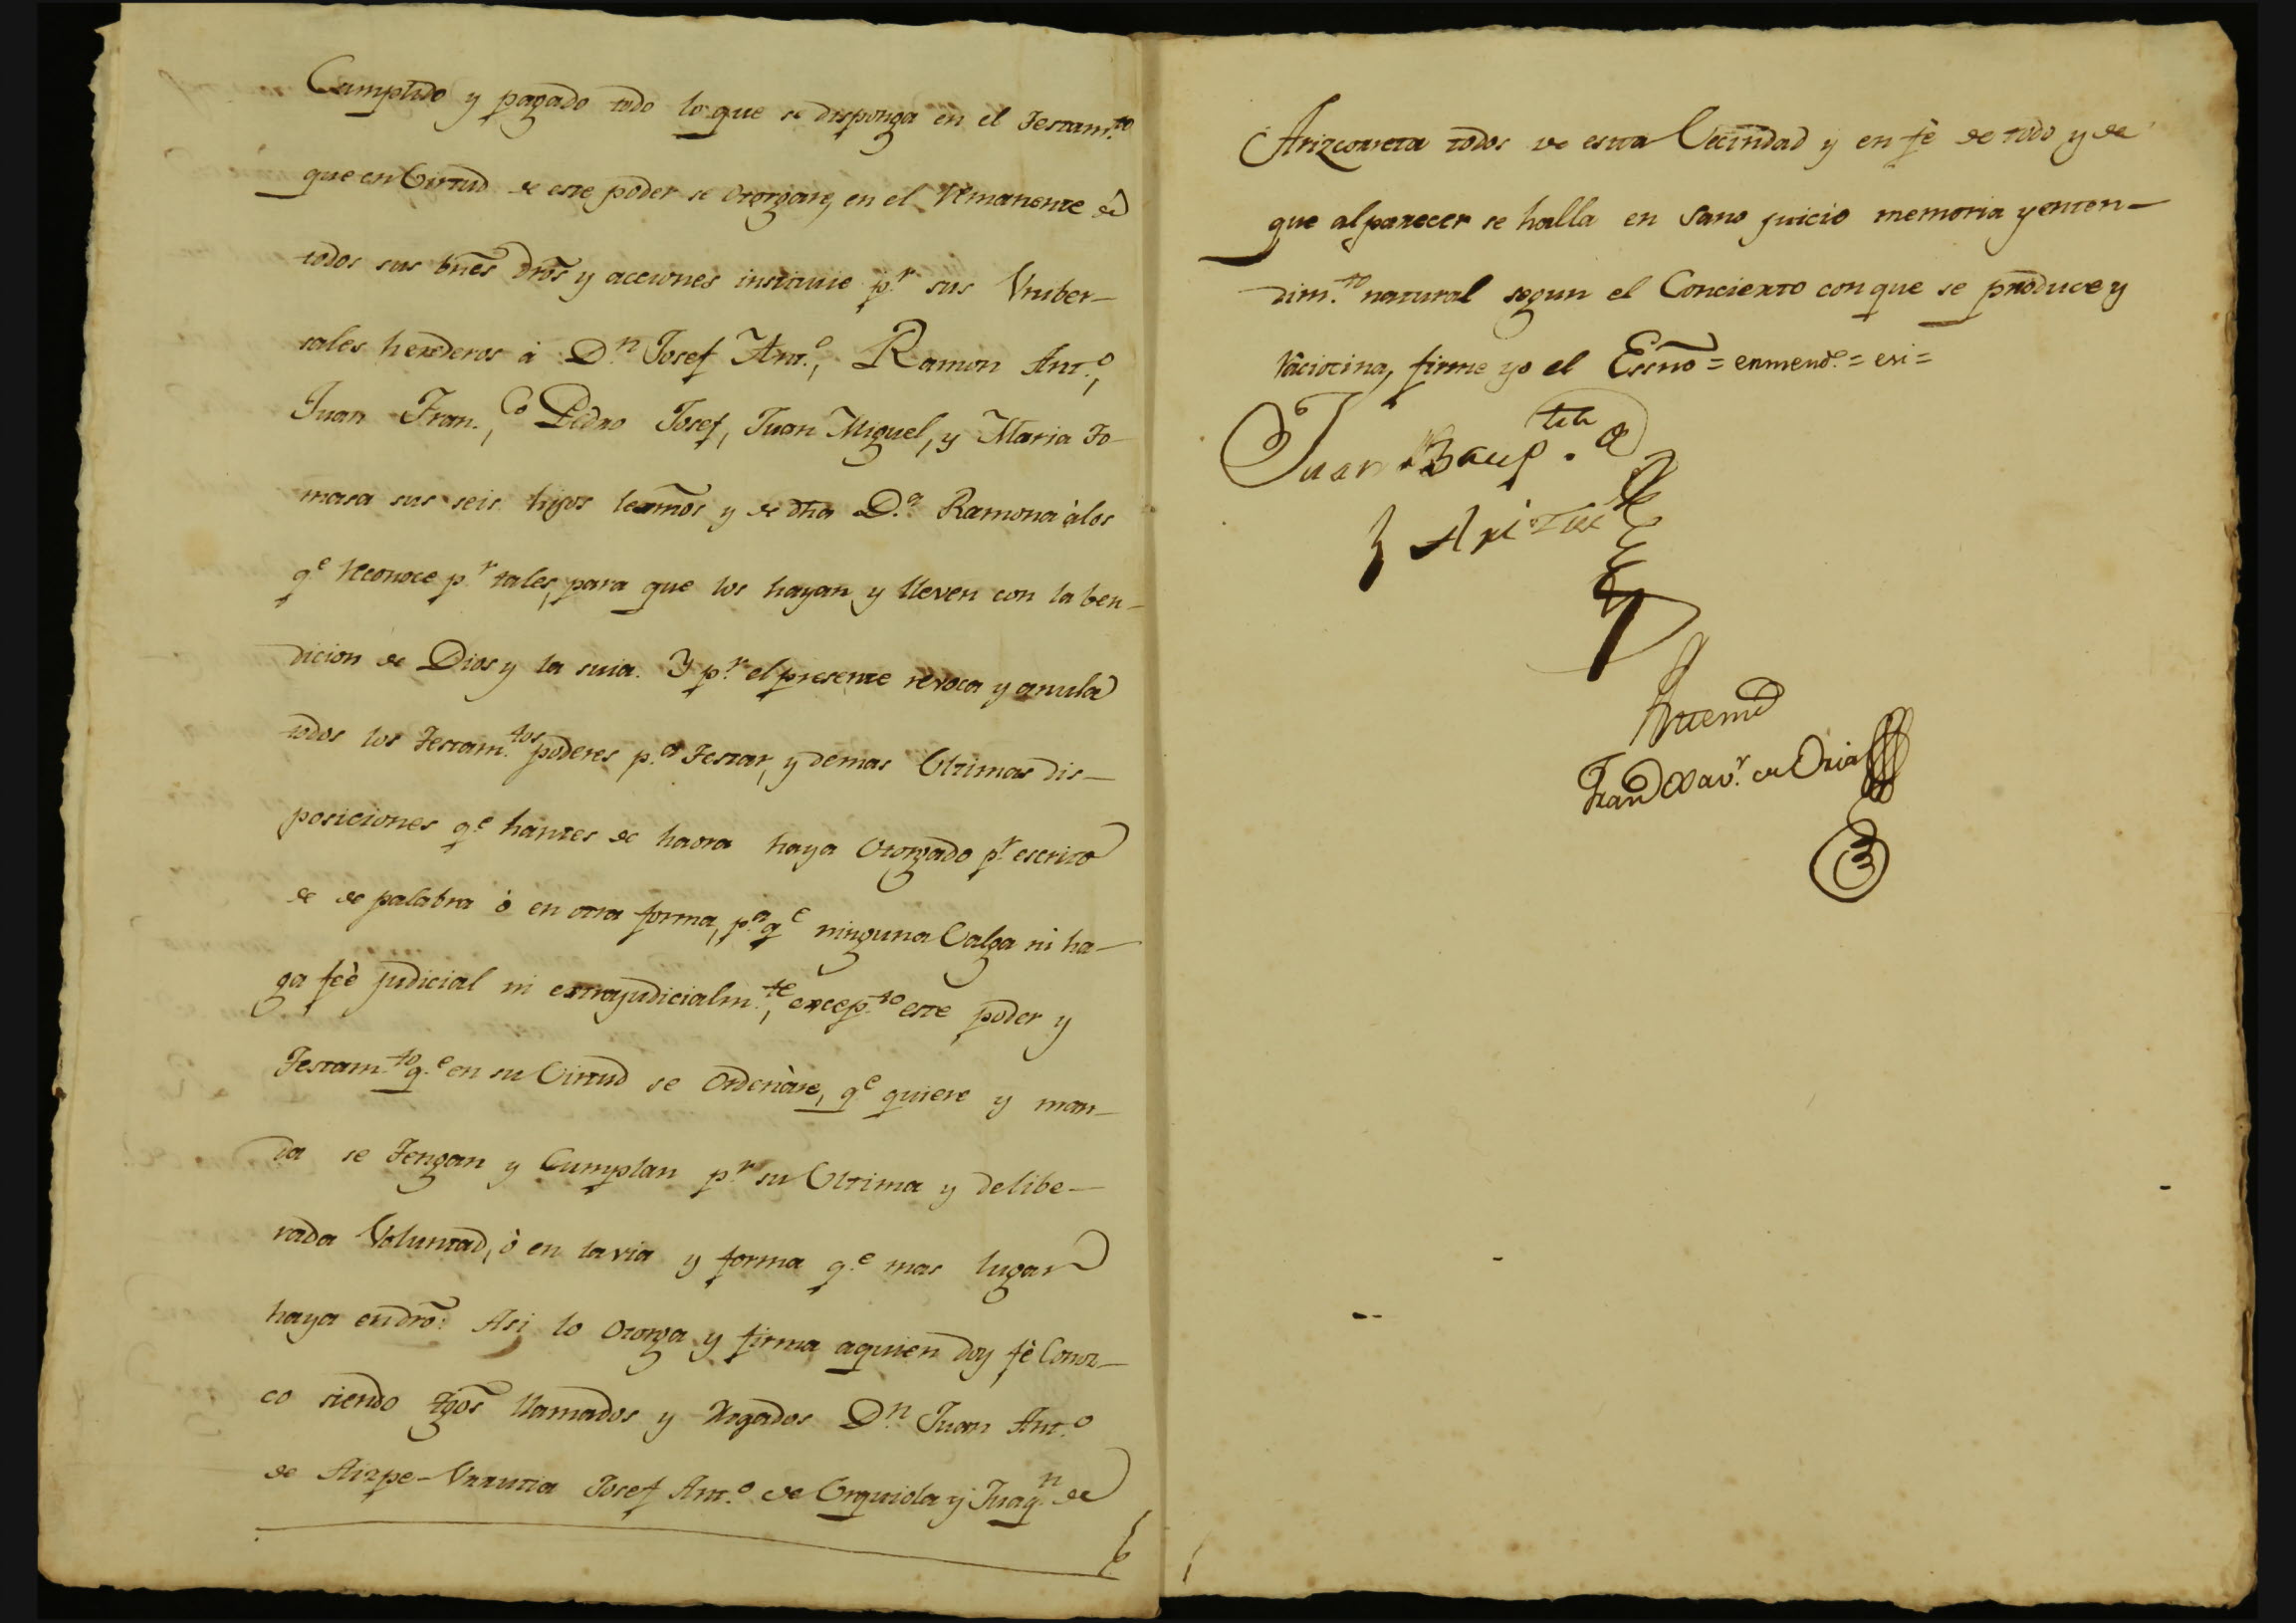 Cumplido y pagado todo lo que se disponga en el Testam.to
que en Virtud de este poder se otorgare, en el remanente de
todos sus bnēs drōs y acciones instituie p.r sus Vniber-
sales herederos à D.n Josef Ant.o, Ramon Ant.o,
Juan Fran.co, Pedro Josef, Juan Miguel, y Maria To-
masa sus seis hijos lexmōs y de dha D.a Ramona à los
q.e reconoce p.r tales, para que los hayan y lleven con la ben-
dicion de Dios y la suia. Y p.r el presente revoca y anula
todos los Testam.tos poderes p.a Testar, y demas Ultimas dis-
posiciones q.e hantes de haora haya Otorgado p.r escrito
de de palabra ò en otra forma, p.a q.e ninguna Valga ni ha-
ga feè judicial ni extrajudicialm.te, excep.to este poder y
Testam.to q.e en su Virtud se Ordenàre, q.e quiere y man-
da se Tengan y Cumplan p.r su Ultima y delibe-
rada Voluntad, ò en la via y forma q.e mas lugar
haya en drō: Asi lo Otorga y firma a quien doy fè Conoz-
co siendo tgōs llamados y rogados D.n Juan Ant.o
de Aizpe-Vrrutia Josef Ant.o de Vrquiola y Juaq.n de
Arizcorreta todos de esta Vecindad y en fè de todo y de
que al parecer se halla en Sano juicio memoria y enten-
dim.to natural segun el Concierto con que se produce y
raciocina, firme yo el Essnō = enmend.o = exi =
Juan Baup.tta de
Antemi
Fran.co Xav.r de Oria